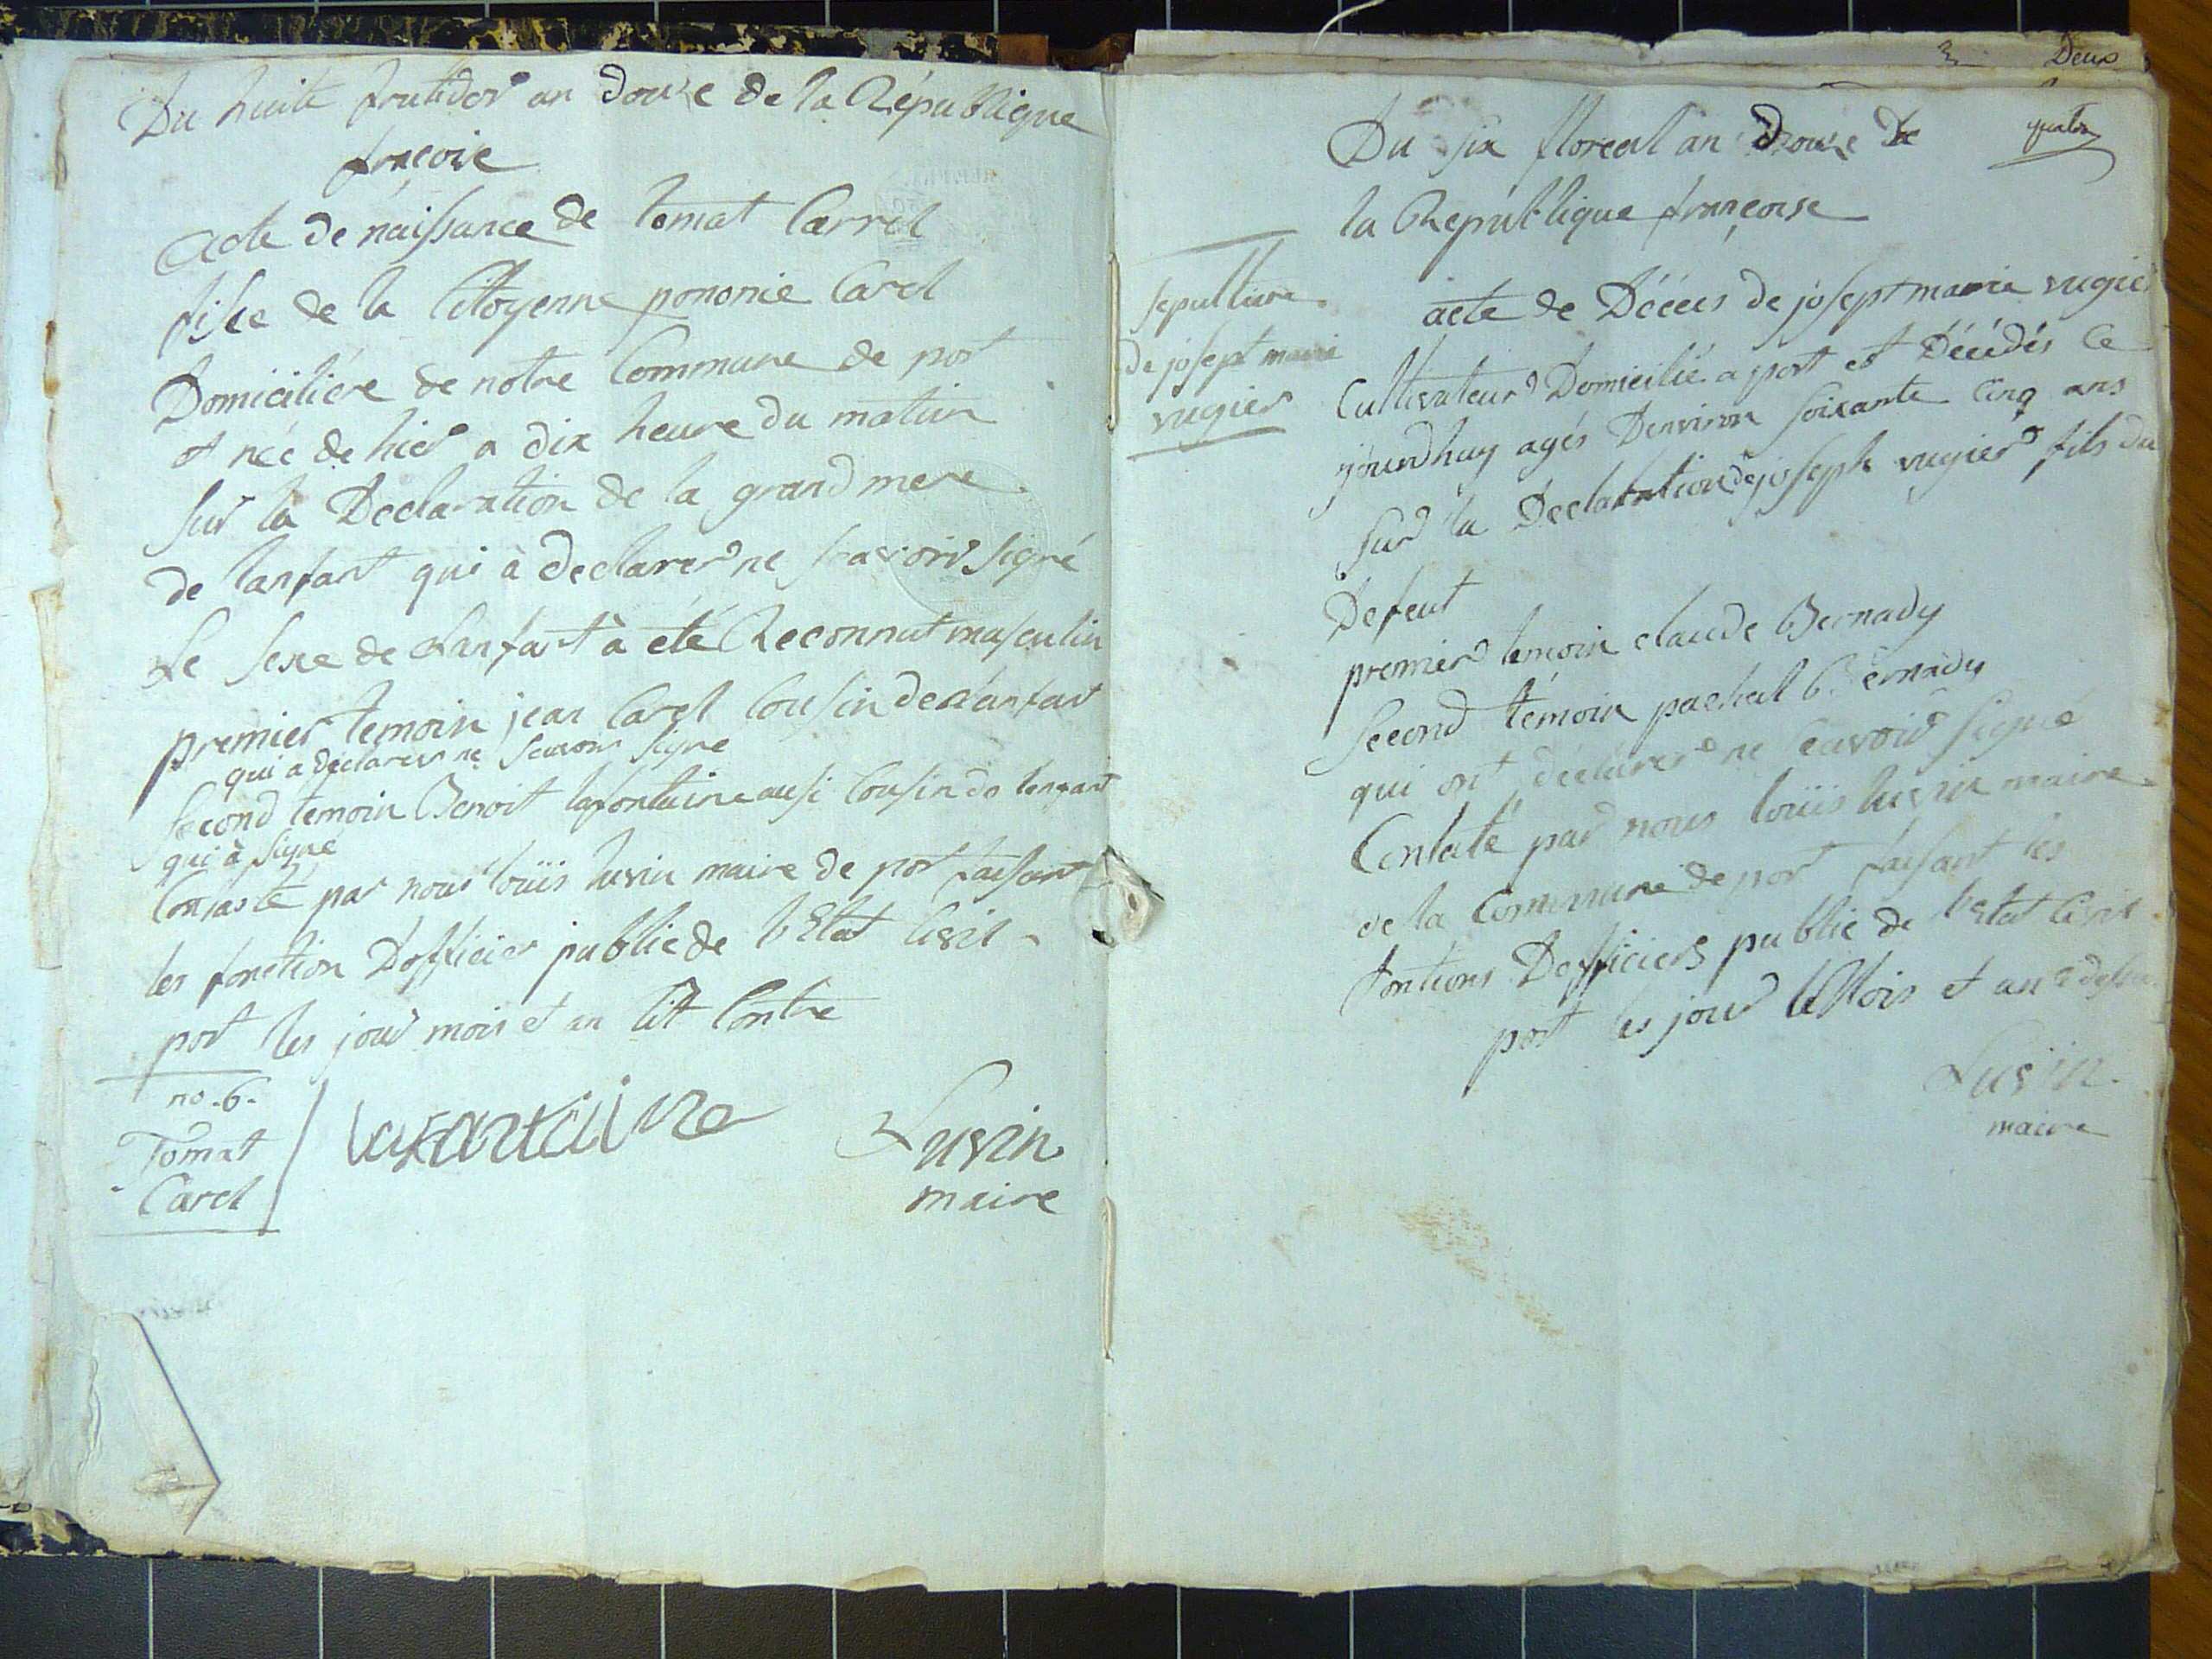 Du huite frutidor an douze de la République
françoise
acte de naissance de tomat Carrel
fisce de la Citoyenne pononie Carel
Domicilière de notre Commune de port
et née de hier a dix heure du matin
sur la Declaration de la grand mere
de lanfant qui à declarer ne scavoir signé
Le sexe de Lanfant à été Reconnut masculin
premier temoin jean Carel Cousin de Lanfant
qui a declarer ne scavoir signe
second temoin Benoit lafontaine ausi Cousin de lenfant
qui à signé
Constaté par nous loüis luvin maire de port faisant
les fonction Dofficier public de l'Etat Civil
port les jour mois et an dit Contre
no. 6.
Tomat
Carel
lafontaine
Luvin
maire
Deux
quatre
Du six floreal an Douze De
la République françoise
sepulture
de josept marie
vugier
acte de Décès de josept marie vugier
Cultivateur Domicilié a port et Décédés Ce
jourdhuy agés Denviron soixante Cinq ans
sur la Declaration de joseph vugier fils du
Defeut
premier temoin claude Bernady
second témoin pachal Bernady
qui ont déclarer ne scavoir signé
Contaté par nous loüis luvin maire
de la Commune de port faisant les
fontions Dofficiers public de l'Etat Civil
port les jour le Mois et an
Luvin
maire